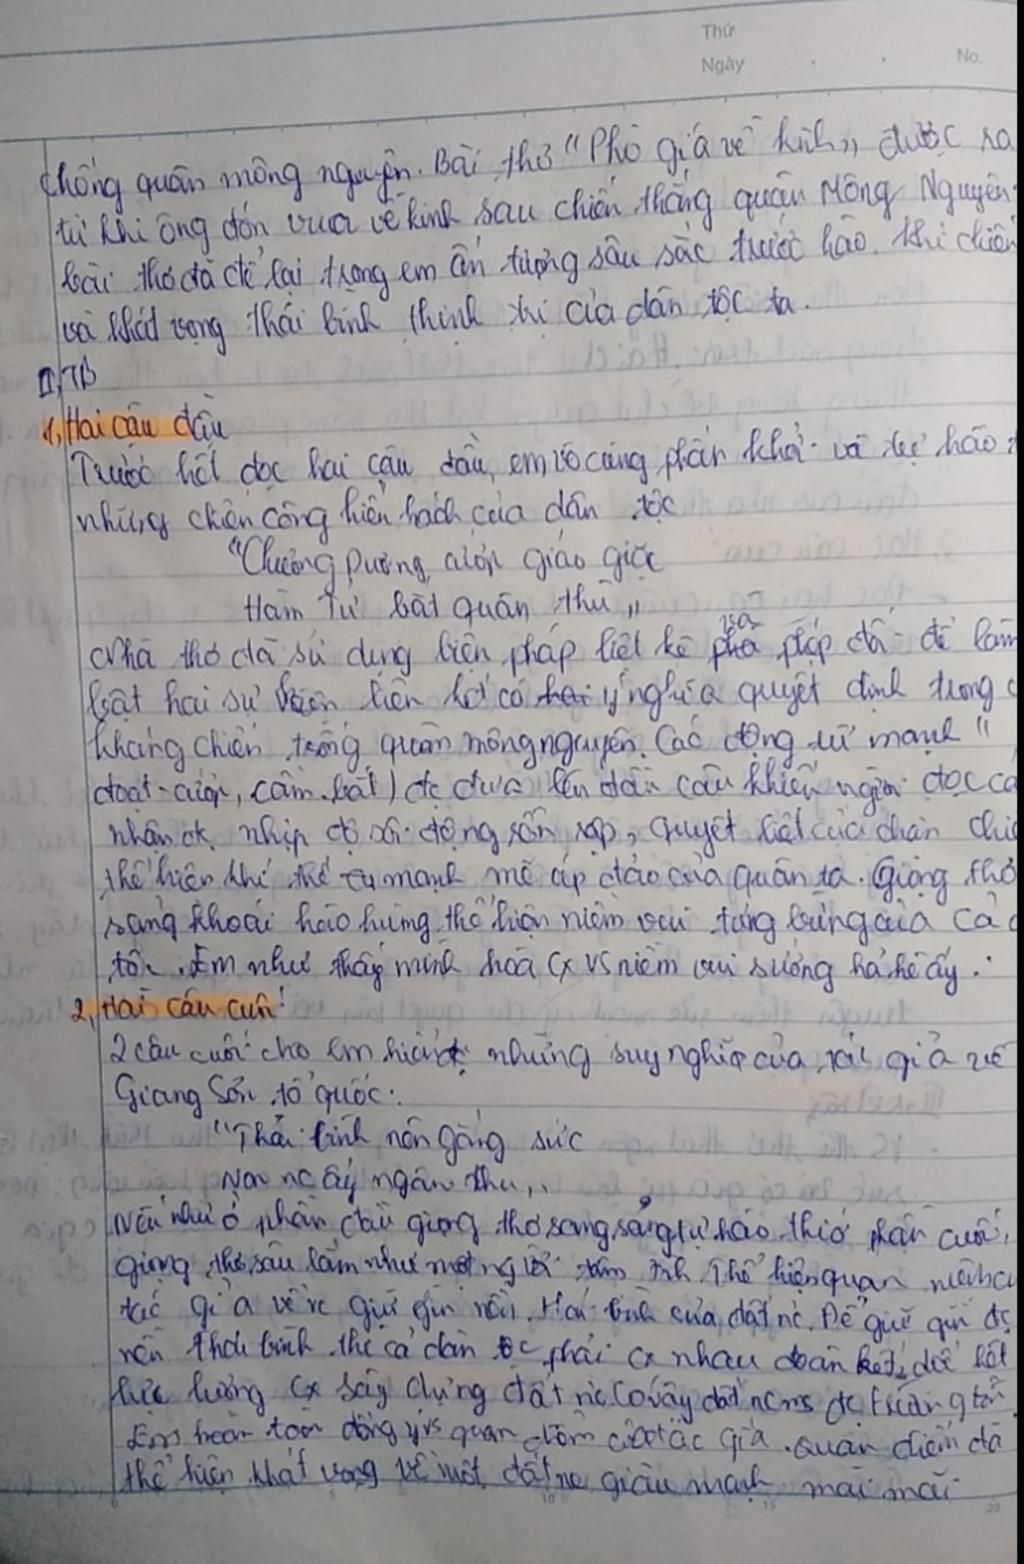 Thứ
Ngày
No.
chống quân mông nguyên. Bài thơ "Phò giá về kinh" được sa
từ khi ông đón vua về kinh sau chiến thắng quân Mông Nguyên
bài thơ đã để lại trong em ấn tượng sâu sắc trước hào khí chiến
và khát vọng thái bình thịnh trị của dân tộc ta.
II, TB
1, Hai câu đầu
Trước hết đọc hai câu đầu, em vô cùng phấn khởi và tự hào
những chiến công hiển hách của dân tộc
"Chương Dương cướp giáo giặc
Hàm Tử bắt quân thù"
Nhà thơ đã sử dụng biện pháp liệt kê phép đối để làm
bật hai sự kiện có ý nghĩa quyết định trong c
kháng chiến quân mông nguyên. Các động từ mạnh "
đoạt - cướp, cầm - bắt) đc đưa lên đầu câu khiến người đọc cả
nhận đc nhịp độ sôi động, quyết liệt của chiến
thể hiện khí thế mạnh mẽ áp đảo của quân ta. Giọng thơ
sảng khoái hào hùng thể hiện niềm vui tưng bừng của cả d
tộc. Em như thấy mình hoà cx vs niềm vui sướng hả hê ấy.
2, Hai câu cuối
2 câu cuối cho em hiểu đc những suy nghĩ của tác giả về
Giang Sơn tổ quốc.
"Thái bình nên gắng sức
Non nc ấy ngàn thu"
Nếu như ở phần đầu giọng thơ sang sảng tự hào thì ở phần cuối,
giọng thơ sâu lắng như một người tâm tình thể hiện quan niệm
tác giả về vc giữ gìn nền thái bình của đất nc. Để giữ gìn đc
nền thái bình thì cả dân tộc phải cx nhau đoàn kết, hết
lực lượng cx xây dựng đất nc. Có vậy đất nc ms đc trường tồn
Em hoàn toàn đồng ý vs quan điểm của tác giả. quan điểm đã
thể hiện khát vọng về một đất nc giàu mạnh mãi mãi